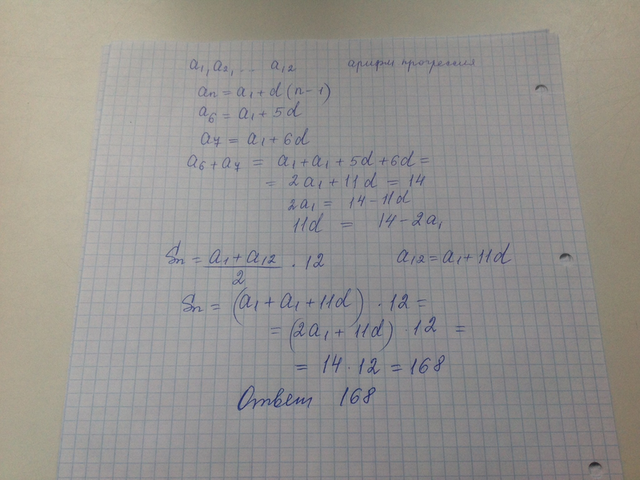 a₁, a₂, ... a₁₂ арифм прогрессия
aₙ = a₁ + d(n-1)
a₆ = a₁ + 5d
a₇ = a₁ + 6d
a₆ + a₇ = a₁ + a₁ + 5d + 6d =
= 2a₁ + 11d = 14
2a₁ = 14 - 11d
11d = 14 - 2a₁
Sₙ = (a₁ + a₁₂)/2 · 12 a₁₂ = a₁ + 11d
Sₙ = (a₁ + a₁ + 11d) · 12 =
= (2a₁ + 11d) · 12 =
= 14 · 12 = 168
Ответ 168